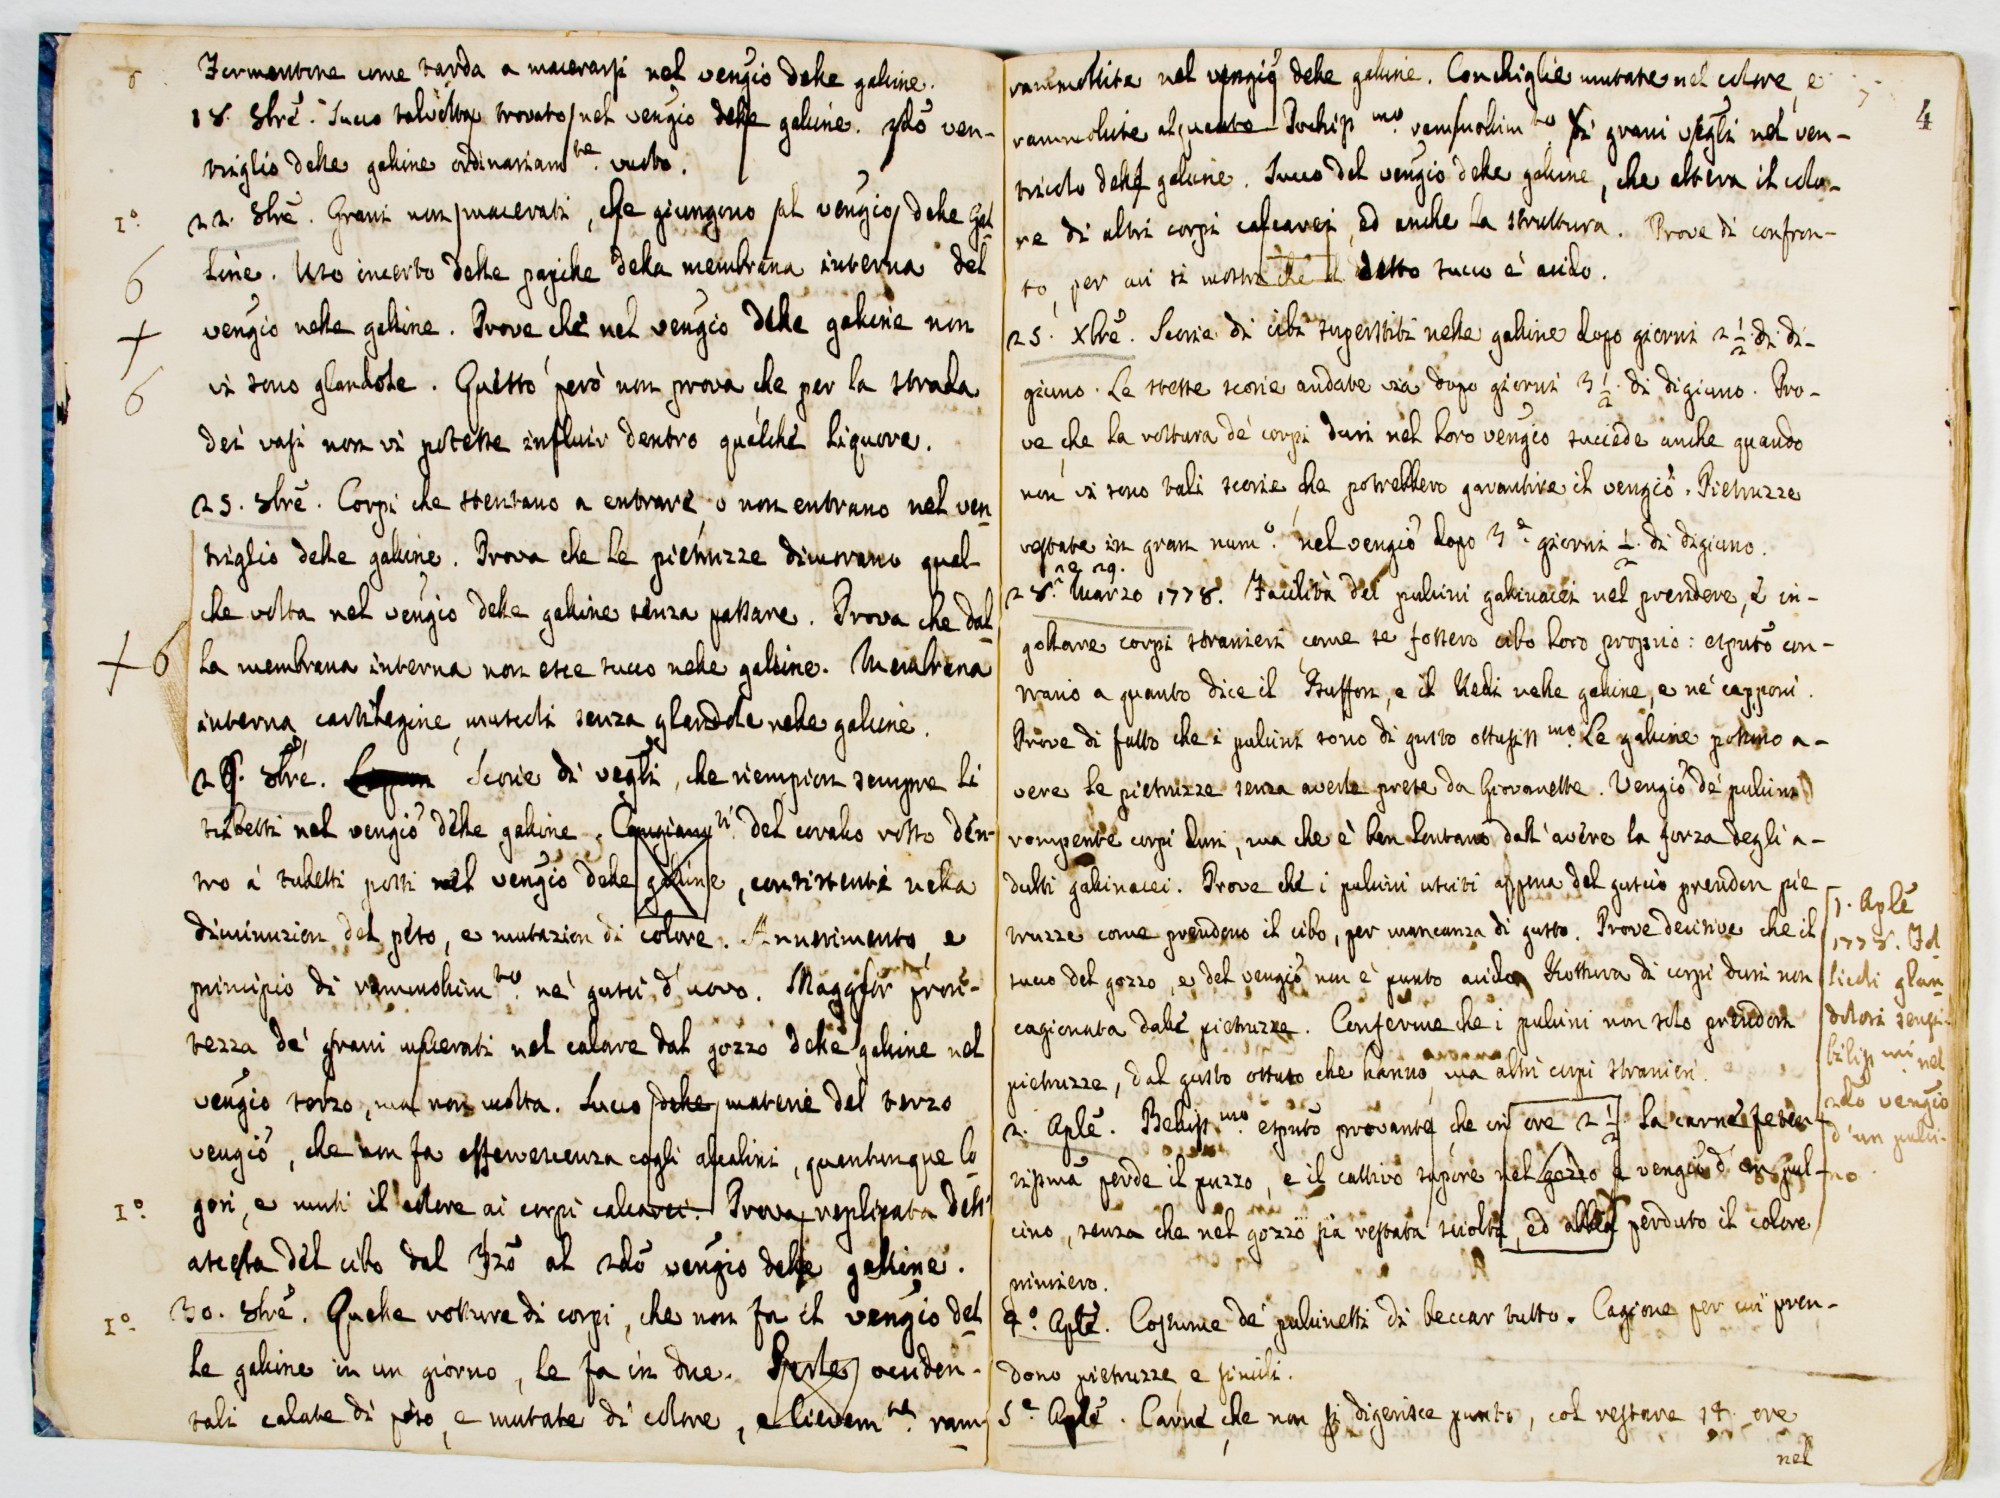 Formentone come tarda a macerarsi nel vengio delle galline.
18. 8brẽ. Succo talvolta trovato nel vengio delle galline. 2do ven-
triglio delle galline ordinariamte vuoto.
1o.
22. 8brẽ. Grani non macerati, che giungono al vengio delle gal-
line. Uso incerto delle pieghe della membrana interna del
6
vengio nelle galline. Prove che nel vengio delle galline non
+
vi sono glandole. Questo però non prova che per la strada
6
dei vasi non vi potesse influir dentro qualche liquore.
25. 8brẽ. Corpi che stentano a entrare, o non entrano nel ven-
triglio delle galline. Prova che le pietruzze dimorano qual-
che volta nel vengio delle galline senza passare. Prova che dal-
+ 6
la membrana interna non esce succo nelle galline. Membrana
interna, cartilagine, muscoli senza glandole nelle galline.
8brẽ. Scorie di vegli, che riempion sempre li
tubetti nel vengio delle galline. del corallo rosso den-
tro a' tubetti posti nel vengio delle galline, consistenti nella
diminuzion del peso, e mutazion di colore. Annerimento, e
principio di rammollimto ne' gusci d'uovo. Maggior pron-
tezza de' grani macerati nel calare dal gozzo delle galline nel
vengio terzo, ma non molta. Succo delle materie del terzo
vengio, che non fa effervescenza cogli alcalini, quantunque lo-
1o.
gori, e muti il colore ai corpi calcarei. Prova replicata dell'
ascesa del cibo dal 3zo al 2do vengio delle galline.
1o.
30. 8brẽ. Quelle rotture di corpi, che non fa il vengio del-
le galline in un giorno, le fa in due. Perle occiden-
tali calate di peso, e mutate di colore, e lievemte ram-
4
rammollite nel vengio delle galline. Conchiglie mutate nel colore, e
rammollite alquanto. Pochissmo rammollimto di grani vegli nel ven-
tricolo delle galline. Succo del vengio delle galline, che altera il colo-
re di altri corpi calcarei, ed anche la struttura. Prove di confron-
to, per cui si mostra che il detto succo è acido.
25. Xbrẽ. Scorie di cibi superstiti nelle galline dopo giorni 2 1/2 di di-
giuno. Le stesse scorie andate via dopo giorni 3 1/2. di digiuno. Pro-
ve che la rottura de' corpi duri nel loro vengio succede anche quando
non vi sono tali scorie, che potrebbero garantire il vengio. Pietruzze
restate in gran numo. nel vengio dopo 3 giorni 1/2. di digiuno.
ne 29.
28. Marzo 1778. Facilità dei pulcini gallinacei nel prendere, e in-
goltare corpi stranieri come se fossero cibo loro proprio: espto con-
trario a quanto dice il Buffon, e il Redi nelle galline, e ne' capponi.
Prove di fatto che i pulcini sono di gusto ottusissmo. Le galline possono a-
vere le pietruzze senza averle prese da giovanette. Vengio de' pulcini
rompente corpi duri, ma che è ben lontano dall'avere la forza degli a-
dulti gallinacei. Prove che i pulcini usciti appena dal guscio prendon pie-
truzze come prendono il cibo, per mancanza di gusto. Prove decisive che il
succo del gozzo, e del vengio non è punto acido. Rottura di corpi duri non
cagionata dalle pietruzze. Conferme che i pulcini non solo prendon
pietruzze, dal gusto ottuso che hanno, ma altri corpi stranieri.
2. Aplẽ. Bellissmo. esputo provante che in ore 2 1/2 la carne feten-
tissima perde il puzzo, e il cattivo sapore nel gozzo e vengio d'un pul-
cino, senza che nel gozzo sia restata sciolta, ed abbia perduto il colore
primiero.
4o. Aplẽ. Costume de' pulcinetti di beccar tutto. Cagione per cui pren-
dono pietruzze, e simili.
5a. Aplẽ. Carne, che non si digerisce punto, col restare 14. ore
nel
1. Aplẽ
1778. Fol-
licoli glan-
dolosi sensi-
bilissmi nel
2do vengio
d'un pulci-
no.